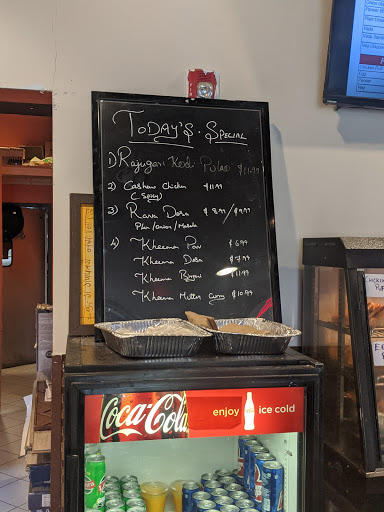 TODAY'S. Special
1) Rajugari Kodi Pulao $11.99
2) Cashew Chicken $11.99
(Spicy)
3) Rava Dosa $8.99/$9.99
Plain/onion/Masala
4) Kheema Pav $6.99
Kheema Dosa $7.99
Kheema Biryani $11.99
Kheema Mutter Curry $10.99
CHICKEN
Coca-Cola
enjoy ice cold